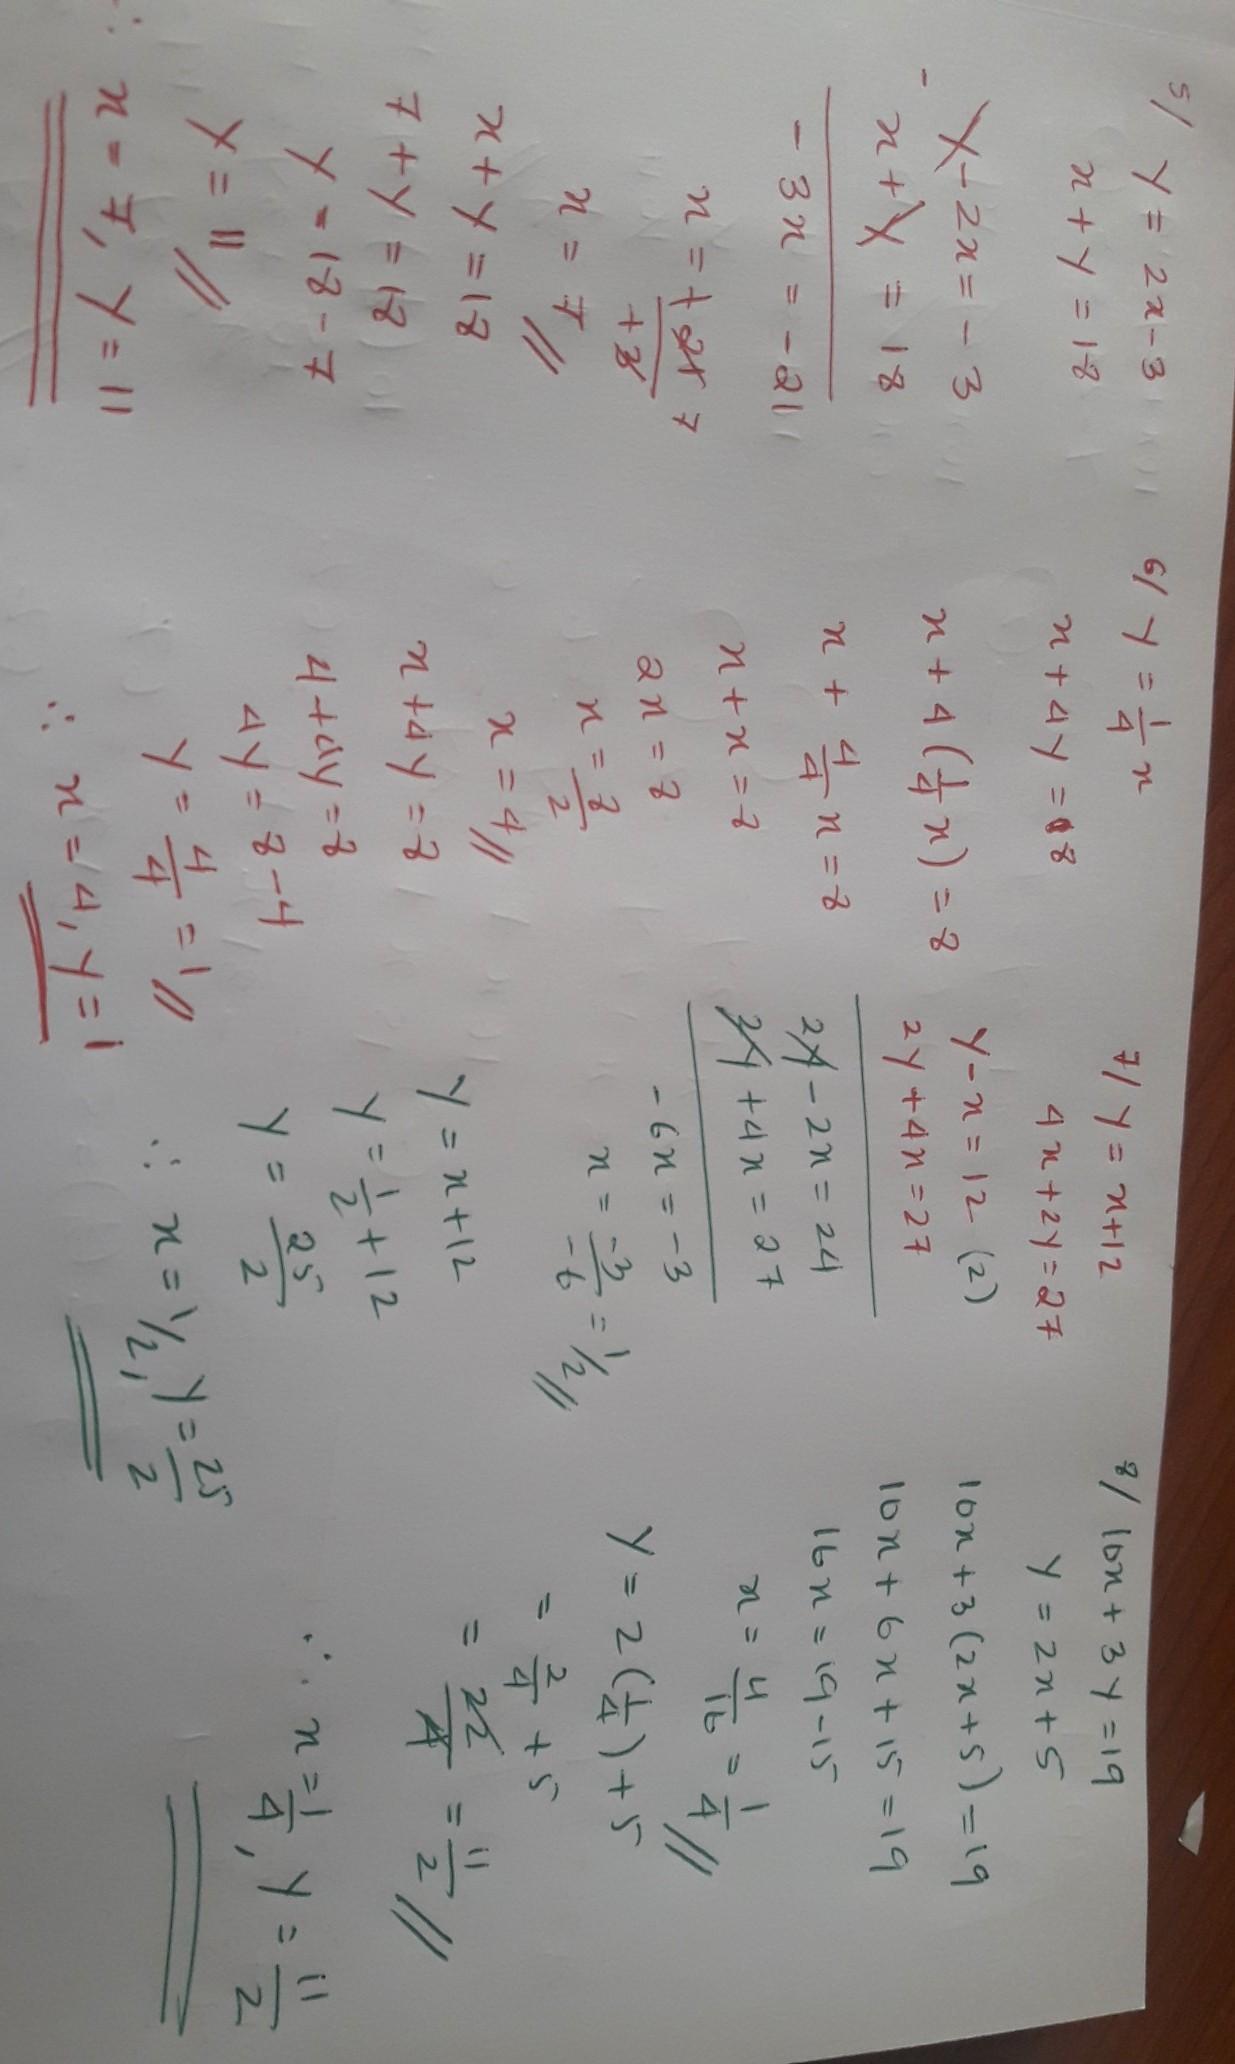 5/ y = 2x-3
x + y = 18
y - 2x = - 3
- x + y = 18
- 3x = - 21
x = + 21 7
+ 3
x = 7 //
x + y = 18
7 + y = 18
y = 18 - 7
y = 11 //
∴ x = 7, y = 11
6/ y = 1/4 x
x + 4y = 8
x + 4 (1/4 x) = 8
x + 4/4 x = 8
x + x = 8
2x = 8
x = 8/2
x = 4 //
x + 4y = 8
4 + 4y = 8
4y = 8 - 4
y = 4/4 = 1 //
∴ x = 4, y = 1
7/ y = x+12
4x + 2y = 27
y - x = 12 (2)
2y + 4x = 27
2y - 2x = 24
2y + 4x = 27
- 6x = - 3
x = -3/-6 = 1/2 //
y = x + 12
y = 1/2 + 12
y = 25/2
∴ x = 1/2, y = 25/2
8/ 10x + 3y = 19
y = 2x + 5
10x + 3(2x + 5) = 19
10x + 6x + 15 = 19
16x = 19 - 15
x = 4/16 = 1/4 //
y = 2 (1/4) + 5
= 2/4 + 5
= 22/4 = 11/2 //
∴ x = 1/4, y = 11/2